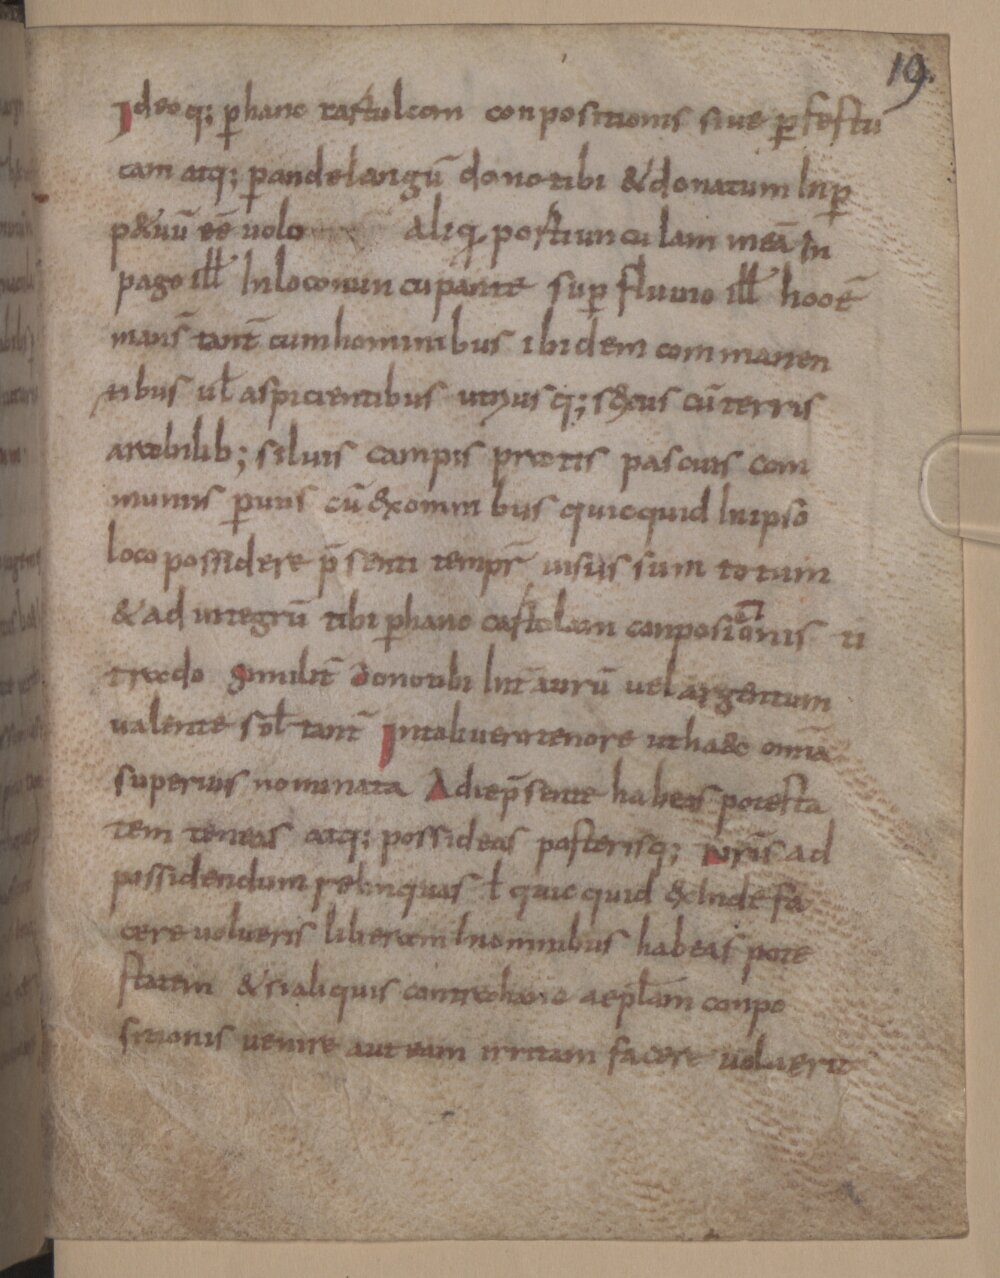 19.
Ideoq; p̱hanc rastulcam conpositionis siue p̱festu
cam atq; p̱andelangū donotibi &donatum Inp̱
p&uū eē uolo Aliq̱ portiunculam meā In
pago ill̅ Inloconuncupante sup̱ fluuio ill̅ hocē
mans̄ tant̄ cumhominibus ibidem conmanen
tibus ul̄ aspicientibus utriusq; sexus cūterris
arabilib; siluis campis pratis pascuis com
munis p̱uiis cū&xomnibus quicquid Inipso
loco possidere p̄senti tempr̄ uisus sum totum
&ad integrū tibi p̱hanc castolam conposicionis ti
trado Similit̄ donotibi Int̄ aurū uel argentum
ualente sol̄ tant̄ Intaliuerotenore utha&c omīa
superius nominata Adiep̄sente habeas potesta
tem teneas atq; possideas posterisq; tuis ad
possidendum relinquas l̄ quicquid &xIndē fa
cere uolueris liberam Inomnibus habeas pote
statem &sialiquis contrahanc aepl̄am conpo
sitionis uenire aut eam irritam facere uoluerit